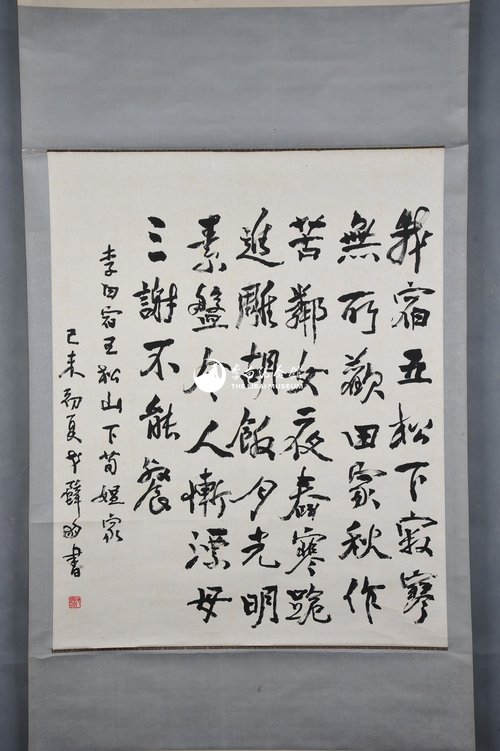 我宿五松下寂寥
無所歡田家秋作
苦鄰女夜舂寒跪
進雕胡飯月光明
素盤令人慚漂母
三謝不能餐
李白宿五松山下荀媪家
己未初夏 書
李白紀念館
THE LIBAI MUSEUM